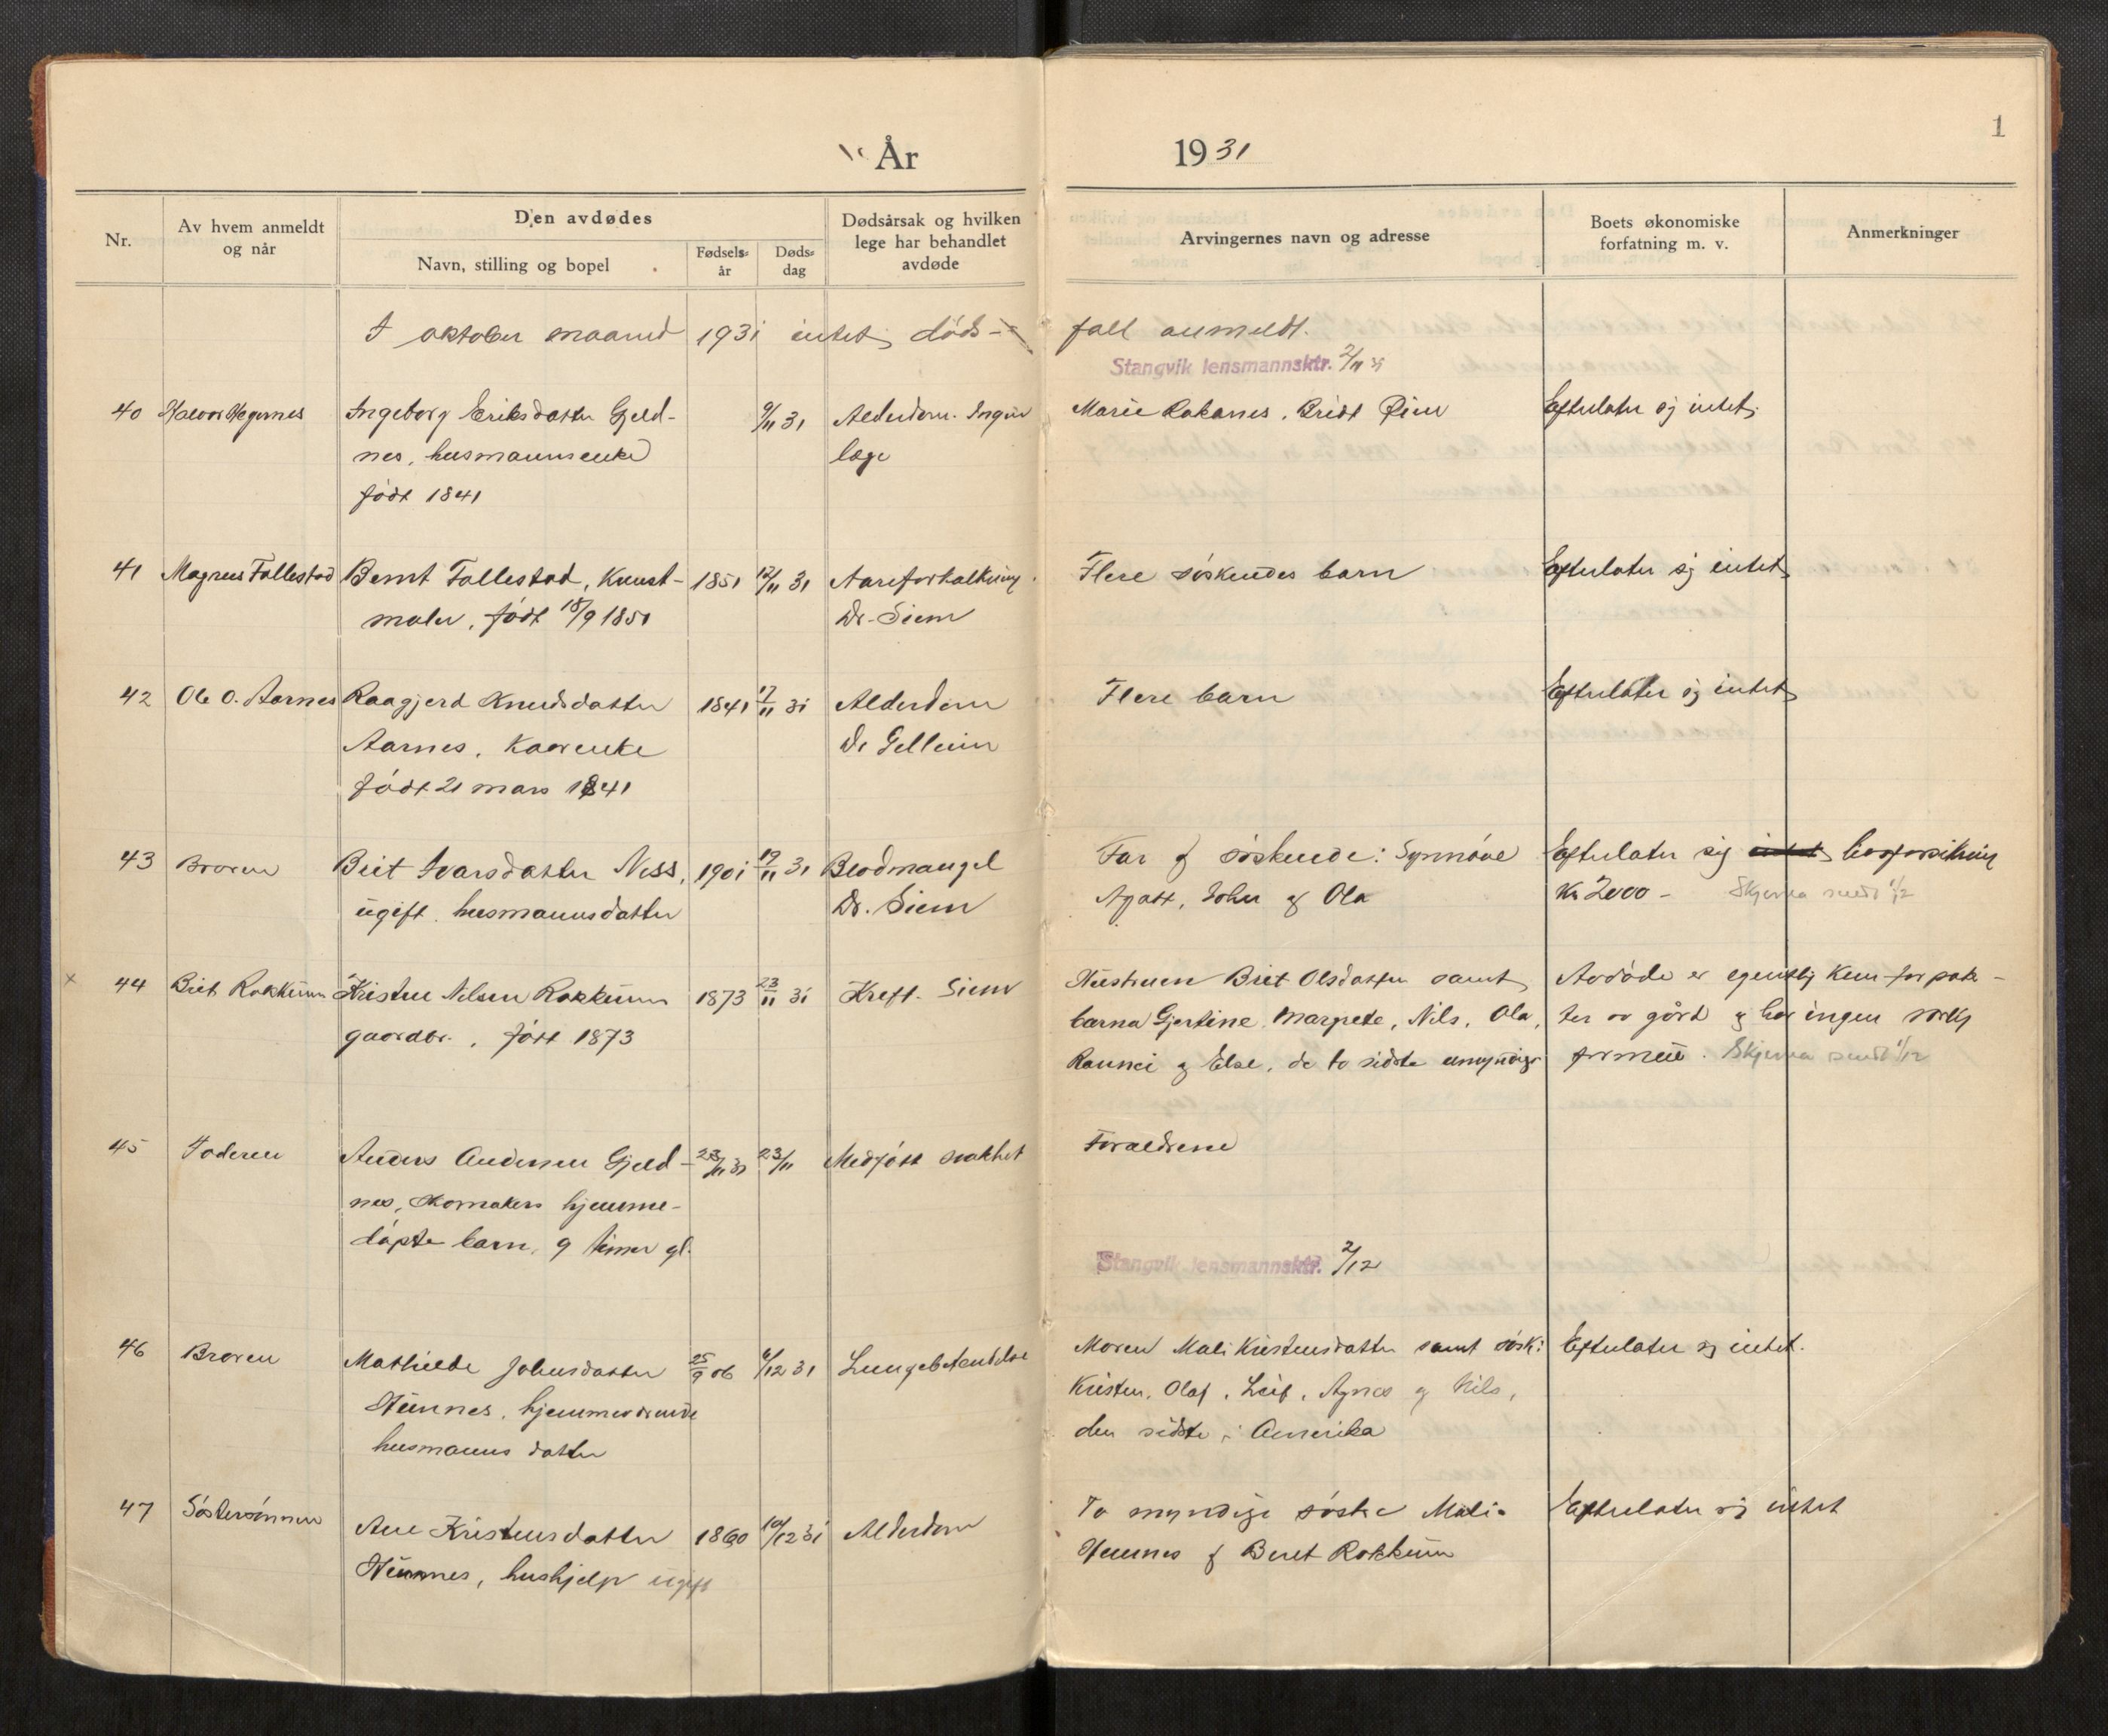 År 1931
1
Nr.
Av hvem anmeldt
og når
Den avdødes
Navn, stilling og bopel
Fødsels-
år
Døds-
dag
Dødsårsak og hvilken
lege har behandlet
avdøde
Arvingernes navn og adresse
Boets økonomiske
forfatning m. v.
Anmerkninger
I oktober maaned 1931 intet døds- fall anmeldt.
Stangvik lensmannsktr. 2/11 31
40 Halvor Hegernes Ingeborg Eriksdatter Gjeld- 9/11 31 Alderdom. Ingen Marie Rakanes, Bridt Øien Efterlater sj intet.
nes, husmannsenke læge
født 1841
41 Magnus Tallestad Bernt Tallestad, Kunst- 1851 12/11 31 Aareforkalkning Flere søskendes barn Efterlater sj intet
maler, født 18/9 1851 Dr. Siem
42 Ole O. Aarnes Raagjerd Knudsdatter 1841 17/11 31 Alderdom Flere barn Efterlater sj intet
Aarnes, Kaarenke Dr
født 21 mars 1841
43 Broren Brit Ivarsdatter Ness, 1901 19/11 31 Blodmangel Far og søskende: Synnøve Efterlater sig intet livsforsikring
ugift husmannsdatter Dr. Siem Agatt, John og Ola Kr 2000 - Skjema sendt 1/12
x 44 Brit Rokkum Kristen Nilsen Rokkum 1873 23/11 31 Kreft. Siem Hustruen Brit Olsdatter samt Avdøde er egentlig kun forpak-
gaardbr., født 1873 barna Gjertine, Margrete, Nils, Ola, ter av gård og har ingen særlig
Rannei og Else, de to sidste umyndige formue. Skjema sendt 1/12
45 Faderen Anders Andersen Gjeld- 23/11 31 23/11 Medfött svakhet Foraeldrene
nes, skomakers hjemme-
döpte barn, 9 timer gl.
Stangvik lensmannsktr. 2/12
46 Broren Mathilde Johnsdatter 25/9 06 6/12 31 Lungebetendelse Moren Mali Kristensdatter samt søsk: Efterlater sj intet.
Hennes, hjemmeværende Kristen, Olaf, Leif, Agnes og Nils,
husmanns datter den sidste i Amerika
47 Søstersønnen Ane Kristensdatter 1860 10/12 31 Alderdom To myndige søsk Mali Efterlater sj intet
Hennes, hushjelp ugift Hennes og Beret Rokkum